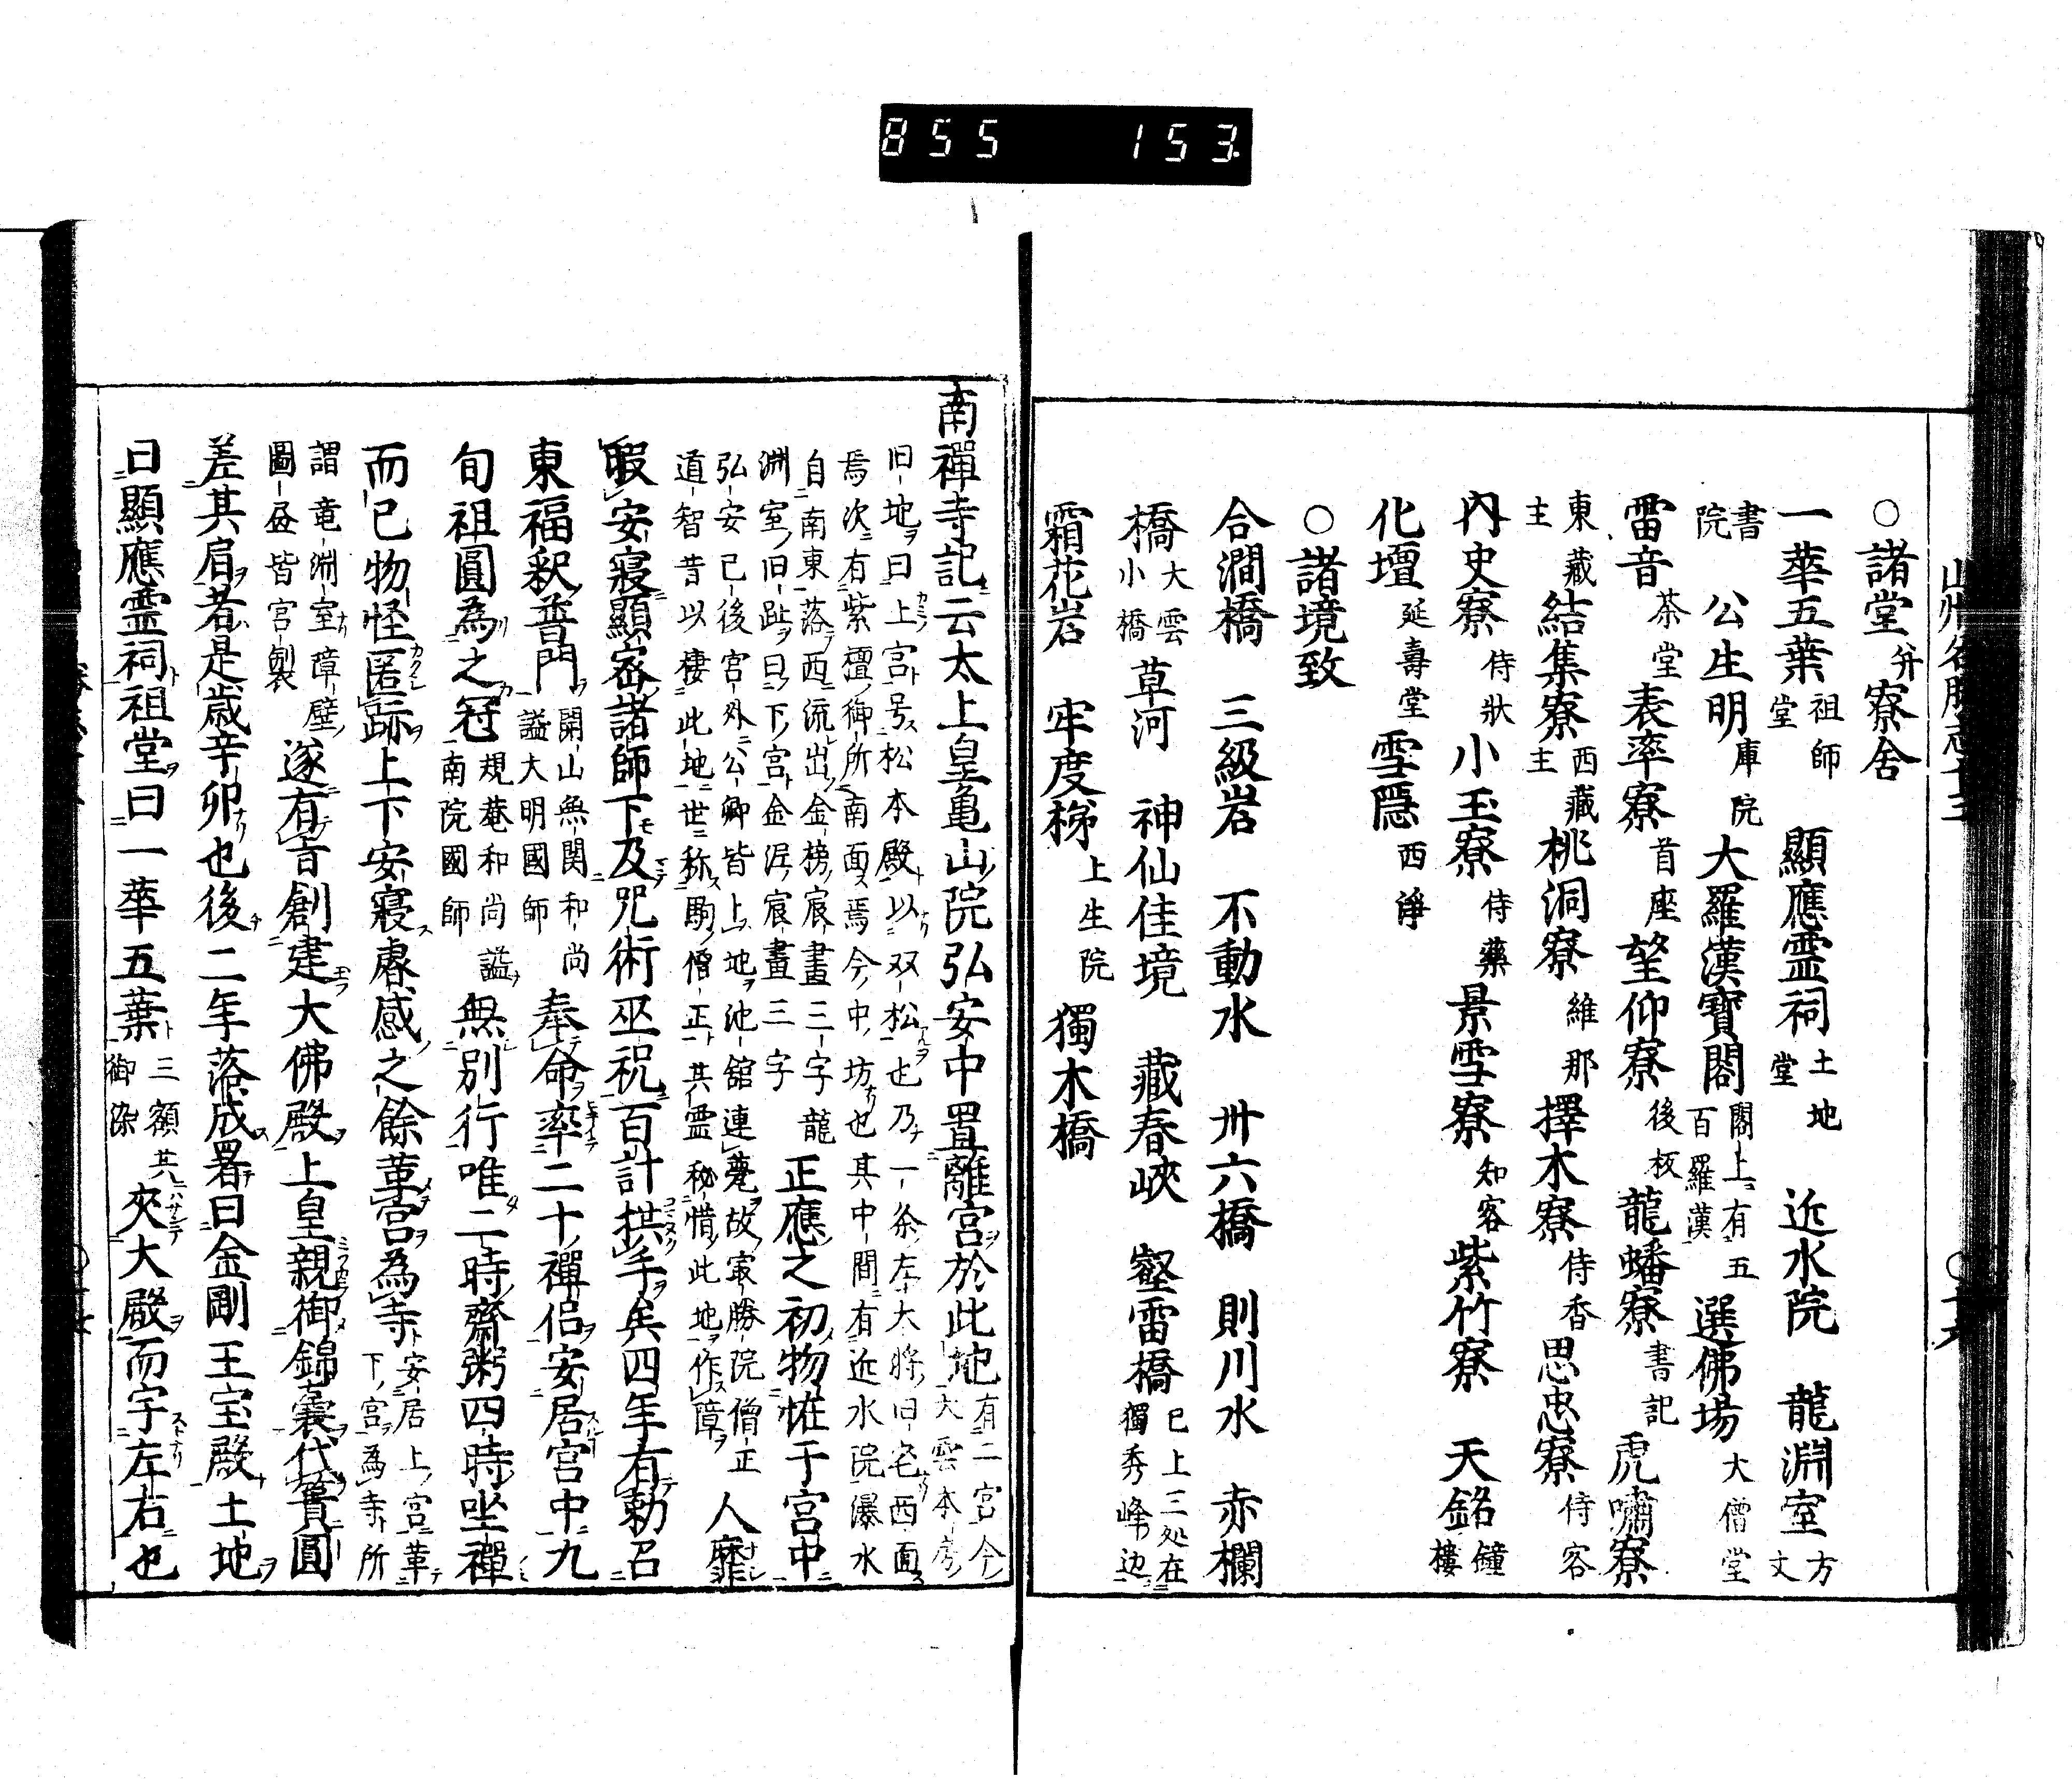 855 153
○諸堂并寮舍
一華五葉 祖師堂 顯應霊祠 土地堂 近水院 龍淵室 方丈
書院 公生明 庫院 大羅漢寶閣 閣上有五百羅漢 選佛場 大僧堂
雷音 茶堂 表率寮 首座 望仰寮 後板 龍蟠寮 書記 虎嘯寮
東藏主 結集寮 西藏主 桃洞寮 維那 擇木寮 侍香 思忠寮 侍客
內史寮 侍状 小玉寮 侍藥 景雪寮 知客 紫竹寮 天銘 鐘樓
化壇 延壽堂 雪隱 西淨
○諸境致
合澗橋 三級岩 不動水 卅六橋 則川水 赤欄
橋 大雲小橋 草河 神仙佳境 藏春峽 壑雷橋 已上三処在獨秀峰边
霜花岩 牢度梯 上生院 獨木橋
南禪寺記云太上皇亀山院弘安中置離宮於此地 有二宮今大雲本房
旧地曰上宮号松本殿以双松也乃一条左大將旧宅西面
焉次有紫檀御所南面焉今中坊也其中間有近水院瀑水
自南東落西流出金榜宸畫三字龍
淵室旧趾曰下宮金泥宸畫三字 正應之初物恠于宮中
弘安已後宮外公卿皆上地池舘連甍故寂勝院僧正
道智昔以棲此地世称駒僧正其霊秘惜此地作障 人靡
暇安寢顯宻諸師下及咒術巫祝百計拱手矣四年有勅召
東福釈普門 開山無関和尚謚大明國師 奉命率二十禪侶安居宮中九
旬祖圓為之冠 規菴和尚謚南院國師 無別行唯二時齋粥四時坐禪
而已物怪匿跡上下安寢睿感之餘革宮為寺 安居上宮革下宮為寺所
謂竜淵室障壁圖昼皆宮製 遂有旨創建大佛殿上皇親御錦嚢代簣圓
差其肩者是歳辛卯也後二年落成署曰金剛王宝殿土地
曰顯應霊祠祖堂曰一華五葉 三額共御染 夾大殿而宇左右也